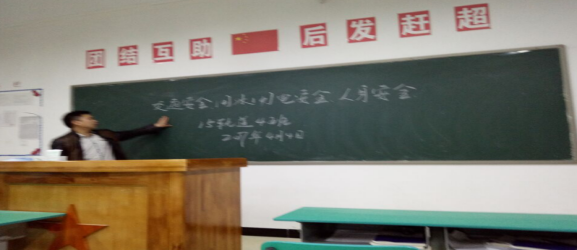 团结互助 后发赶超
交通安全 用水用电安全 人身安全
15轨道42班
2017年4月4日